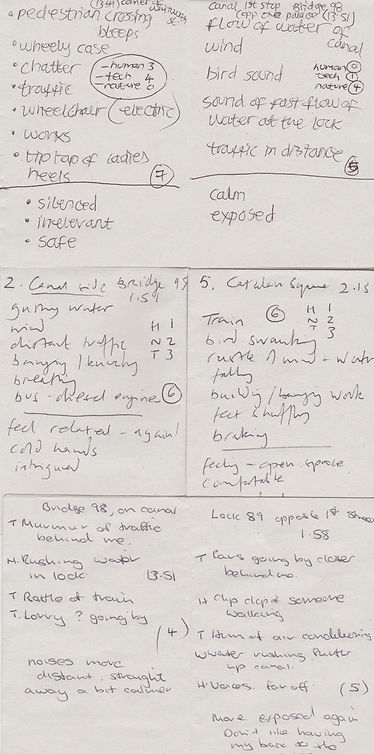 (13:41) corner of
• pedestrian crossing
bleeps
• wheely case
• chatter
• traffic
- human 3
- tech 4
- nature 0
• wheelchair (electric)
• works
• tip tap of ladies
heels
7
• silenced
• irrelevant
• safe
canal 1st stop Bridge 98
(opp the palace) (13:51)
flow of water of
canal
wind
bird sound
human 0
tech 1
nature 4
sound of fast flow of
water at the lock
traffic in distance
5
calm
exposed
2. Canal side Bridge 99
1.59
gushy water
wind
distant traffic
banging / knocking
breathing
bus - diesel engine 6
H 1
N 2
T 3
feel relaxed - again!
cold hands
intrigued
5. Catalan Square 2.13
Train 6
H 1
N 2
T 3
bird swanking
rustle of wind - water
falling
building / bangy work
feet shuffling
braking
feeling - open space
comfortable
Bridge 98, on canal
T Murmur of traffic
behind me.
N. Rushing water
in lock 13.51
T Rattle of train
T. Lorry? going by
(4)
noises more
distant. straight
away a bit calmer
Lock 89 opposite 1st
1.58
T Cars going by closer
behind me.
H clip clop of someone
walking
T Hum of air conditioning
N water rushing further
up canal.
H. Voices far off (5)
More exposed again
Don't like having
my back to the